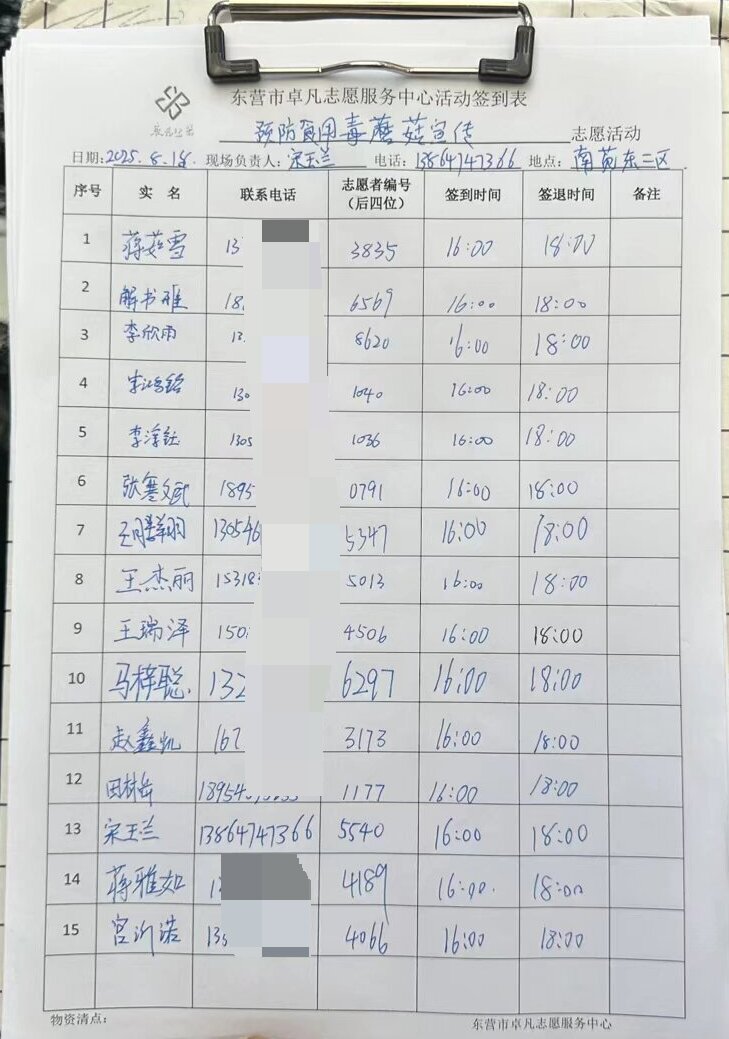 东营市卓凡志愿服务中心活动签到表
预防食用毒蘑菇宣传 志愿活动
日期:2025.8.18. 现场负责人:宋玉兰 电话:13864747366 地点:南苑东二区
序号 实 名 联系电话 志愿者编号(后四位) 签到时间 签退时间 备注
1 蒋茹雪 13 3835 16:00 18:00
2 解书雅 18 6569 16:00 18:00
3 李欣雨 13 8620 16:00 18:00
4 李鸿铭 130 1040 16:00 18:00
5 李淳钰 1305 1036 16:00 18:00
6 张骞文武 1895 0791 16:00 18:00
7 130546 5347 16:00 18:00
8 王杰丽 15318 5013 16:00 18:00
9 王瑞泽 150 4506 16:00 18:00
10 马梓聪 132 6297 16:00 18:00
11 赵鑫凯 167 3173 16:00 18:00
12 田林岳 18954 1177 16:00 18:00
13 宋玉兰 13864747366 5540 16:00 18:00
14 蒋雅如 1 4189 16:00. 18:00
15 宫沂诺 13 4066 16:00 18:00
物资清点: 东营市卓凡志愿服务中心